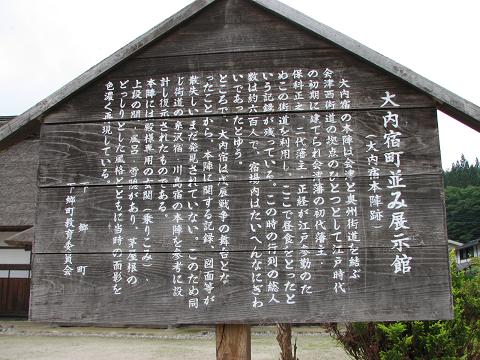 大内宿町並み展示館
（大内宿本陣跡）
大内宿の本陣は会津と奥州街道を結ぶ
会津西街道の拠点のひとつとして江戸時代
の初期に建てられ会津藩の初代藩主
保科正之、二代藩主 正経が江戸参勤のた
めこの街道を利用し、ここで昼食をとったと
いう記録が残っている。この時の行列の総人
数は約六百人で、宿場内はたいへんなにぎわ
いであったとゆう。
ところで、大内宿は戊辰戦争の舞台とな
ったことから、本陣に関する記録、図面等が
散失しいまだ発見されていない。このため同
じ街道の糸沢宿、川島宿の本陣を参考に設
計し復元されたものである。
本陣には殿様専用の玄関、乗りこみ、
上段の間、風呂、雪隠があり、茅屋根の
どっしりとした風格とともに当時の面影を
色濃く再現している。
下郷町
下郷町教育委員会